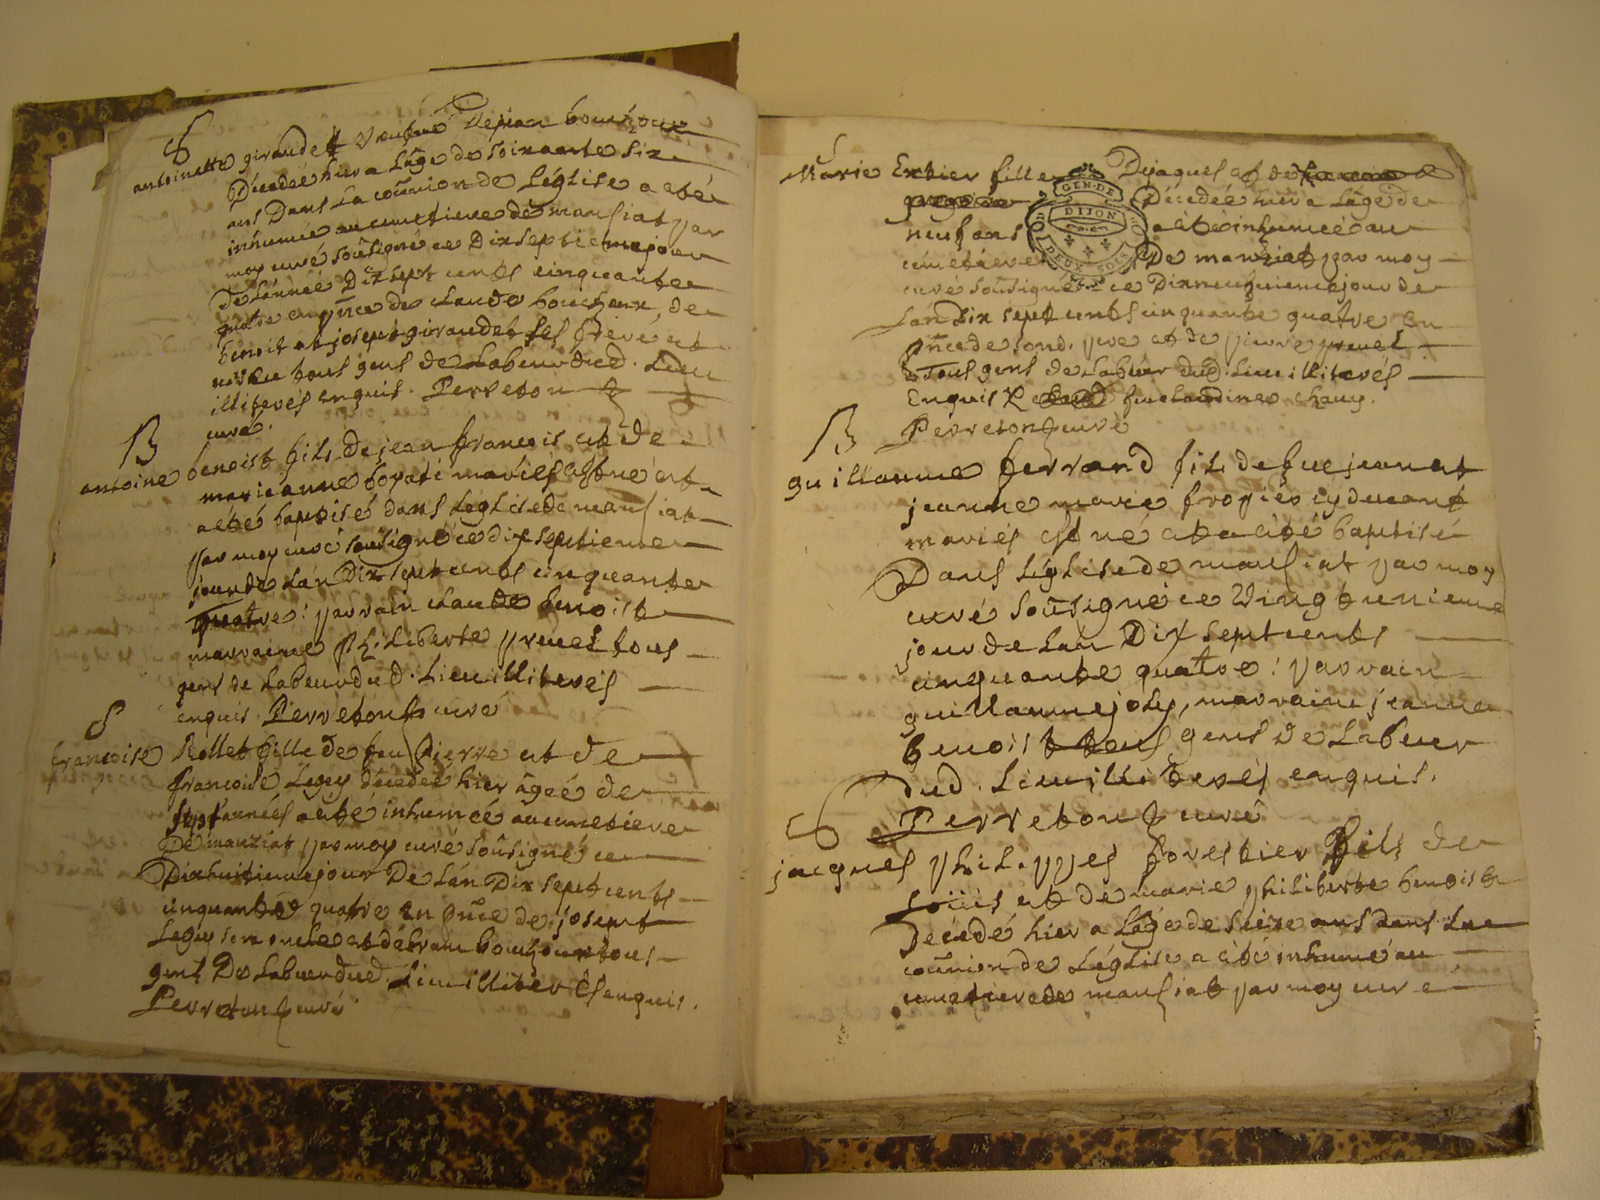 S
antoinette giraudet veufve de jean bouchoux
Décedée hier a Lâge de soixante six
ans Dans La coũnion de Léglise a eté
inhumée au cimetiere de mansiat par
moy curé soûsigné ce Dixseptieme jour
de Lannée Dix sept cents cinquante
quatre en pñce de claude bouchoux, de
benoit et joseph giraudet ses freres et
neveu tous gens de Labeur dud. Lieu
illiterés enquis. Perreton
curé.
B
antoine benoist fils de jean françois et de
marie anne boyate mariés est né et
a eté baptisé dans Leglise de mansiat
par moy curé sousigné ce dix septieme
jour de Lan Dix sept cents cinquante
quatre: parrain claude benoist
marraine philiberte prevel tous
gens de Labeur dud. Lieu illiterés
enquis. Perreton curé
S
francoise Rollet fille de feu pierre et de
francoise Legey décedée hier âgée de
sept années a eté inhumée au cimetiere
De manziat par moy curé soûsigné ce
Dixhuitieme jour De Lan Dix sept cents
cinquante quatre en pñce de joseph
Legey son oncle et de bouchoux tous
gens De Labeur dud. Lieu illiterés enquis.
Perreton curé
S
Marie Entier fille De jaques et de
Décedée hier a Lâge de
neuf ans a eté inhumée au
cimetiere De manziat par moy
curé soûsigné ce Dixneuvieme jour de
Lan Dix sept cents cinquante quatre en
pñce de sond. pere et de pierre prevel
Tous gens de Labeur dud. Lieu illiterés
Enquis claudine chany.
Perreton curé
GEN. DE
DIJON
DEUX SOLS
B
guillaume ferrand fils de feu jean et
jeanne marie frogier cy devant
mariés est né et a eté baptisé
Dans Léglise de mansiat par moy
curé soûsigné ce vingt unieme
jour de Lan Dix sept cents
cinquante quatre: parrain
guillaume joly, marraine jeanne
benoist tous gens de Labeur
dud. Lieu illiterés enquis.
Perreton curé
S
jacques philippes forestier fils de
Loüis et de marie philiberte benoist
Décedé hier a Lâge de seize ans dans La
coũnion de Léglise a eté inhumé au
cimetiere de mansiat par moy curé